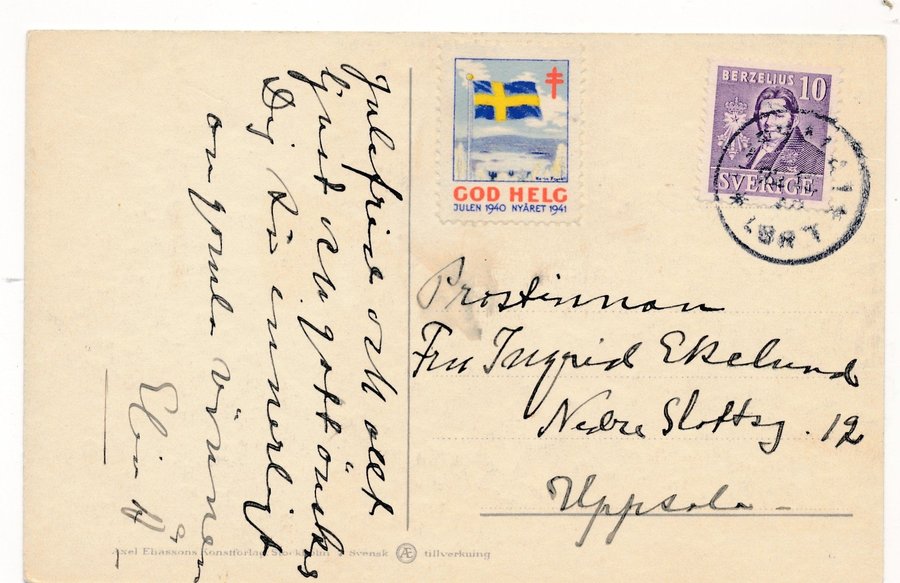 Julefrid och allt
ljust och gott önskas
Dig så innerligt
av gamla vännen
Elin
GOD HELG
JULEN 1940 NYÅRET 1941
BERZELIUS 10
SVERIGE
Prostinnan
Fru Ingrid Ekelund
Nedre Slottsg. 12
Uppsala
Axel Eliassons Konstförlag, Stockholm Svensk Æ tillverkning